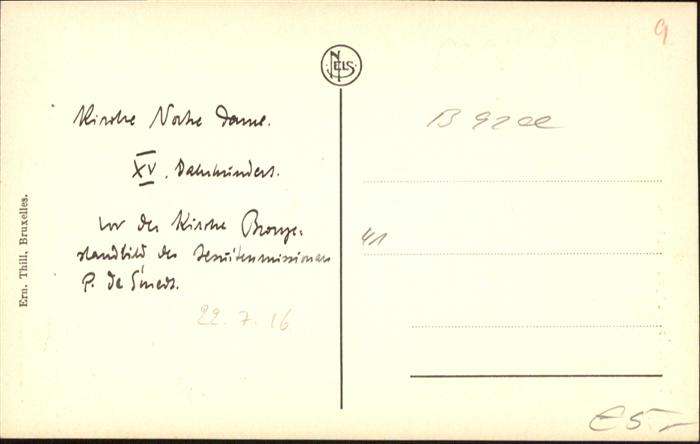 9
NELS
Kirche Notre Dame.
B 9200
XV. Jahrhundert.
vor der Kirche Bronze-
standbild des Jesuitenmissionars
P. de Smedt.
41
22.7.16
Ern. Thill, Bruxelles.
€5,-